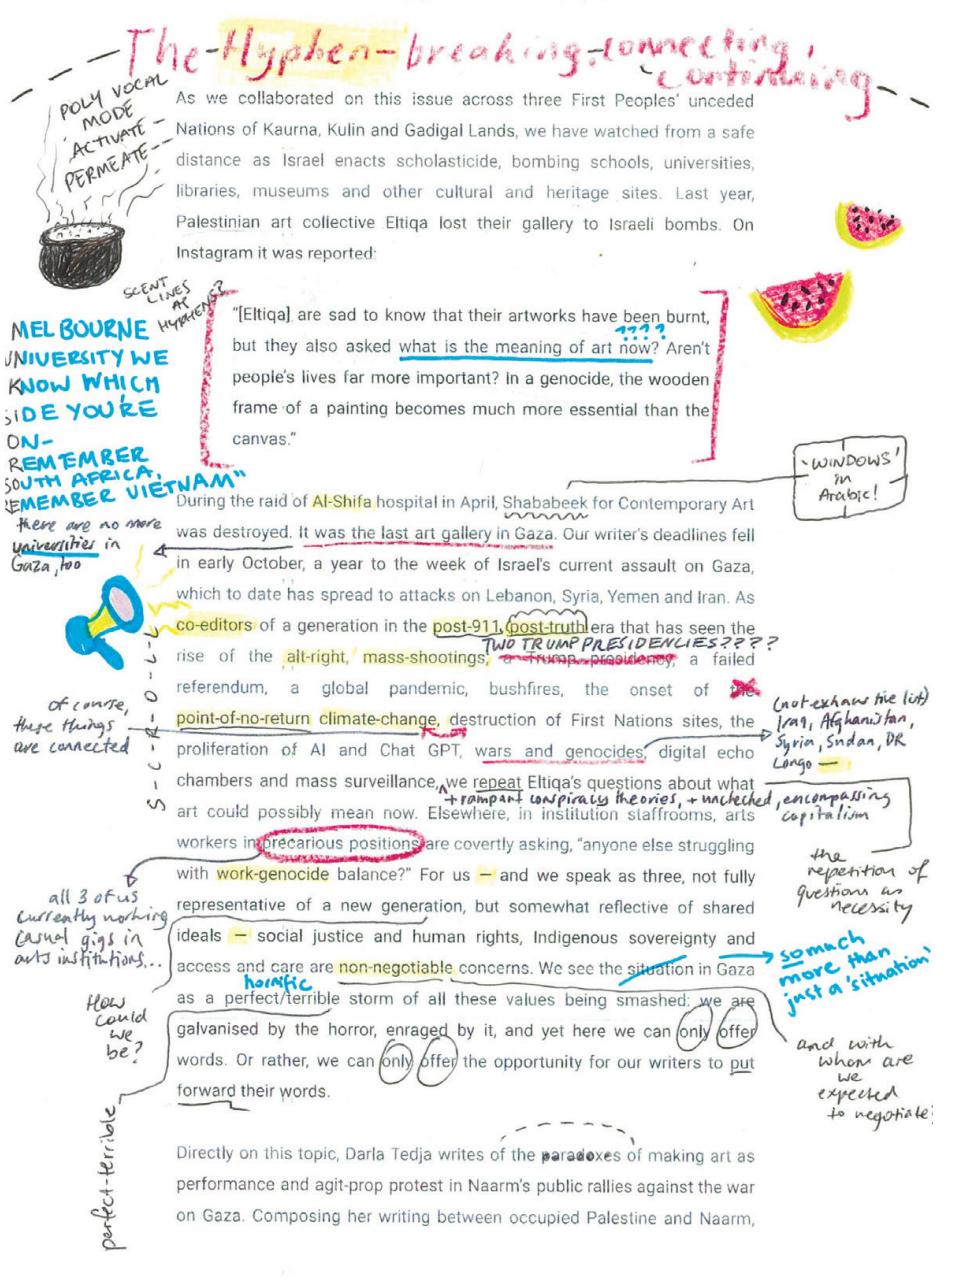 The-Hyphen-breaking,-connecting,
continuing
POLY VOCAL
MODE
'ACTIVATE -
PERMEATE -
As we collaborated on this issue across three First Peoples' unceded
Nations of Kaurna, Kulin and Gadigal Lands, we have watched from a safe
distance as Israel enacts scholasticide, bombing schools, universities,
libraries, museums and other cultural and heritage sites. Last year,
Palestinian art collective Eltiqa lost their gallery to Israeli bombs. On
Instagram it was reported:
SCENT
LINES
AS
HYPHENS?
"[Eltiqa] are sad to know that their artworks have been burnt,
????
but they also asked what is the meaning of art now? Aren't
people's lives far more important? In a genocide, the wooden
frame of a painting becomes much more essential than the
canvas."
MELBOURNE
UNIVERSITY WE
KNOW WHICH
SIDE YOU'RE
ON-
REMEMBER
SOUTH AFRICA,
REMEMBER VIETNAM"
there are no more
universities in
Gaza, too
'WINDOWS'
in
Arabic!
During the raid of Al-Shifa hospital in April, Shababeek for Contemporary Art
was destroyed. It was the last art gallery in Gaza. Our writer's deadlines fell
in early October, a year to the week of Israel's current assault on Gaza,
which to date has spread to attacks on Lebanon, Syria, Yemen and Iran. As
co-editors of a generation in the post-911, post-truth era that has seen the
TWO TRUMP PRESIDENCIES????
rise of the alt-right, mass-shootings, a Trump presidency, a failed
referendum, a global pandemic, bushfires, the onset of the
point-of-no-return climate-change, destruction of First Nations sites, the
proliferation of AI and Chat GPT, wars and genocides, digital echo
chambers and mass surveillance, we repeat Eltiqa's questions about what
+ rampant conspiracy theories, + unchecked, encompassing
capitalism
art could possibly mean now. Elsewhere, in institution staffrooms, arts
workers in precarious positions are covertly asking, "anyone else struggling
with work-genocide balance?" For us – and we speak as three, not fully
representative of a new generation, but somewhat reflective of shared
ideals – social justice and human rights, Indigenous sovereignty and
access and care are non-negotiable concerns. We see the situation in Gaza
horrific
as a perfect/terrible storm of all these values being smashed: we are
galvanised by the horror, enraged by it, and yet here we can only offer
words. Or rather, we can only offer the opportunity for our writers to put
forward their words.
S-C-R-O-L-L
of course,
these things
are connected
(not exhaustive list)
Iraq, Afghanistan,
Syria, Sudan, DR
Congo –
the
repetition of
questions as
necessity
all 3 of us
currently working
casual gigs in
arts institutions...
so much
more than
just a 'situation'
How
could
we
be?
and with
whom are
we
expected
to negotiate?
perfect-terrible
Directly on this topic, Darla Tedja writes of the paradoxes of making art as
performance and agit-prop protest in Naarm's public rallies against the war
on Gaza. Composing her writing between occupied Palestine and Naarm,